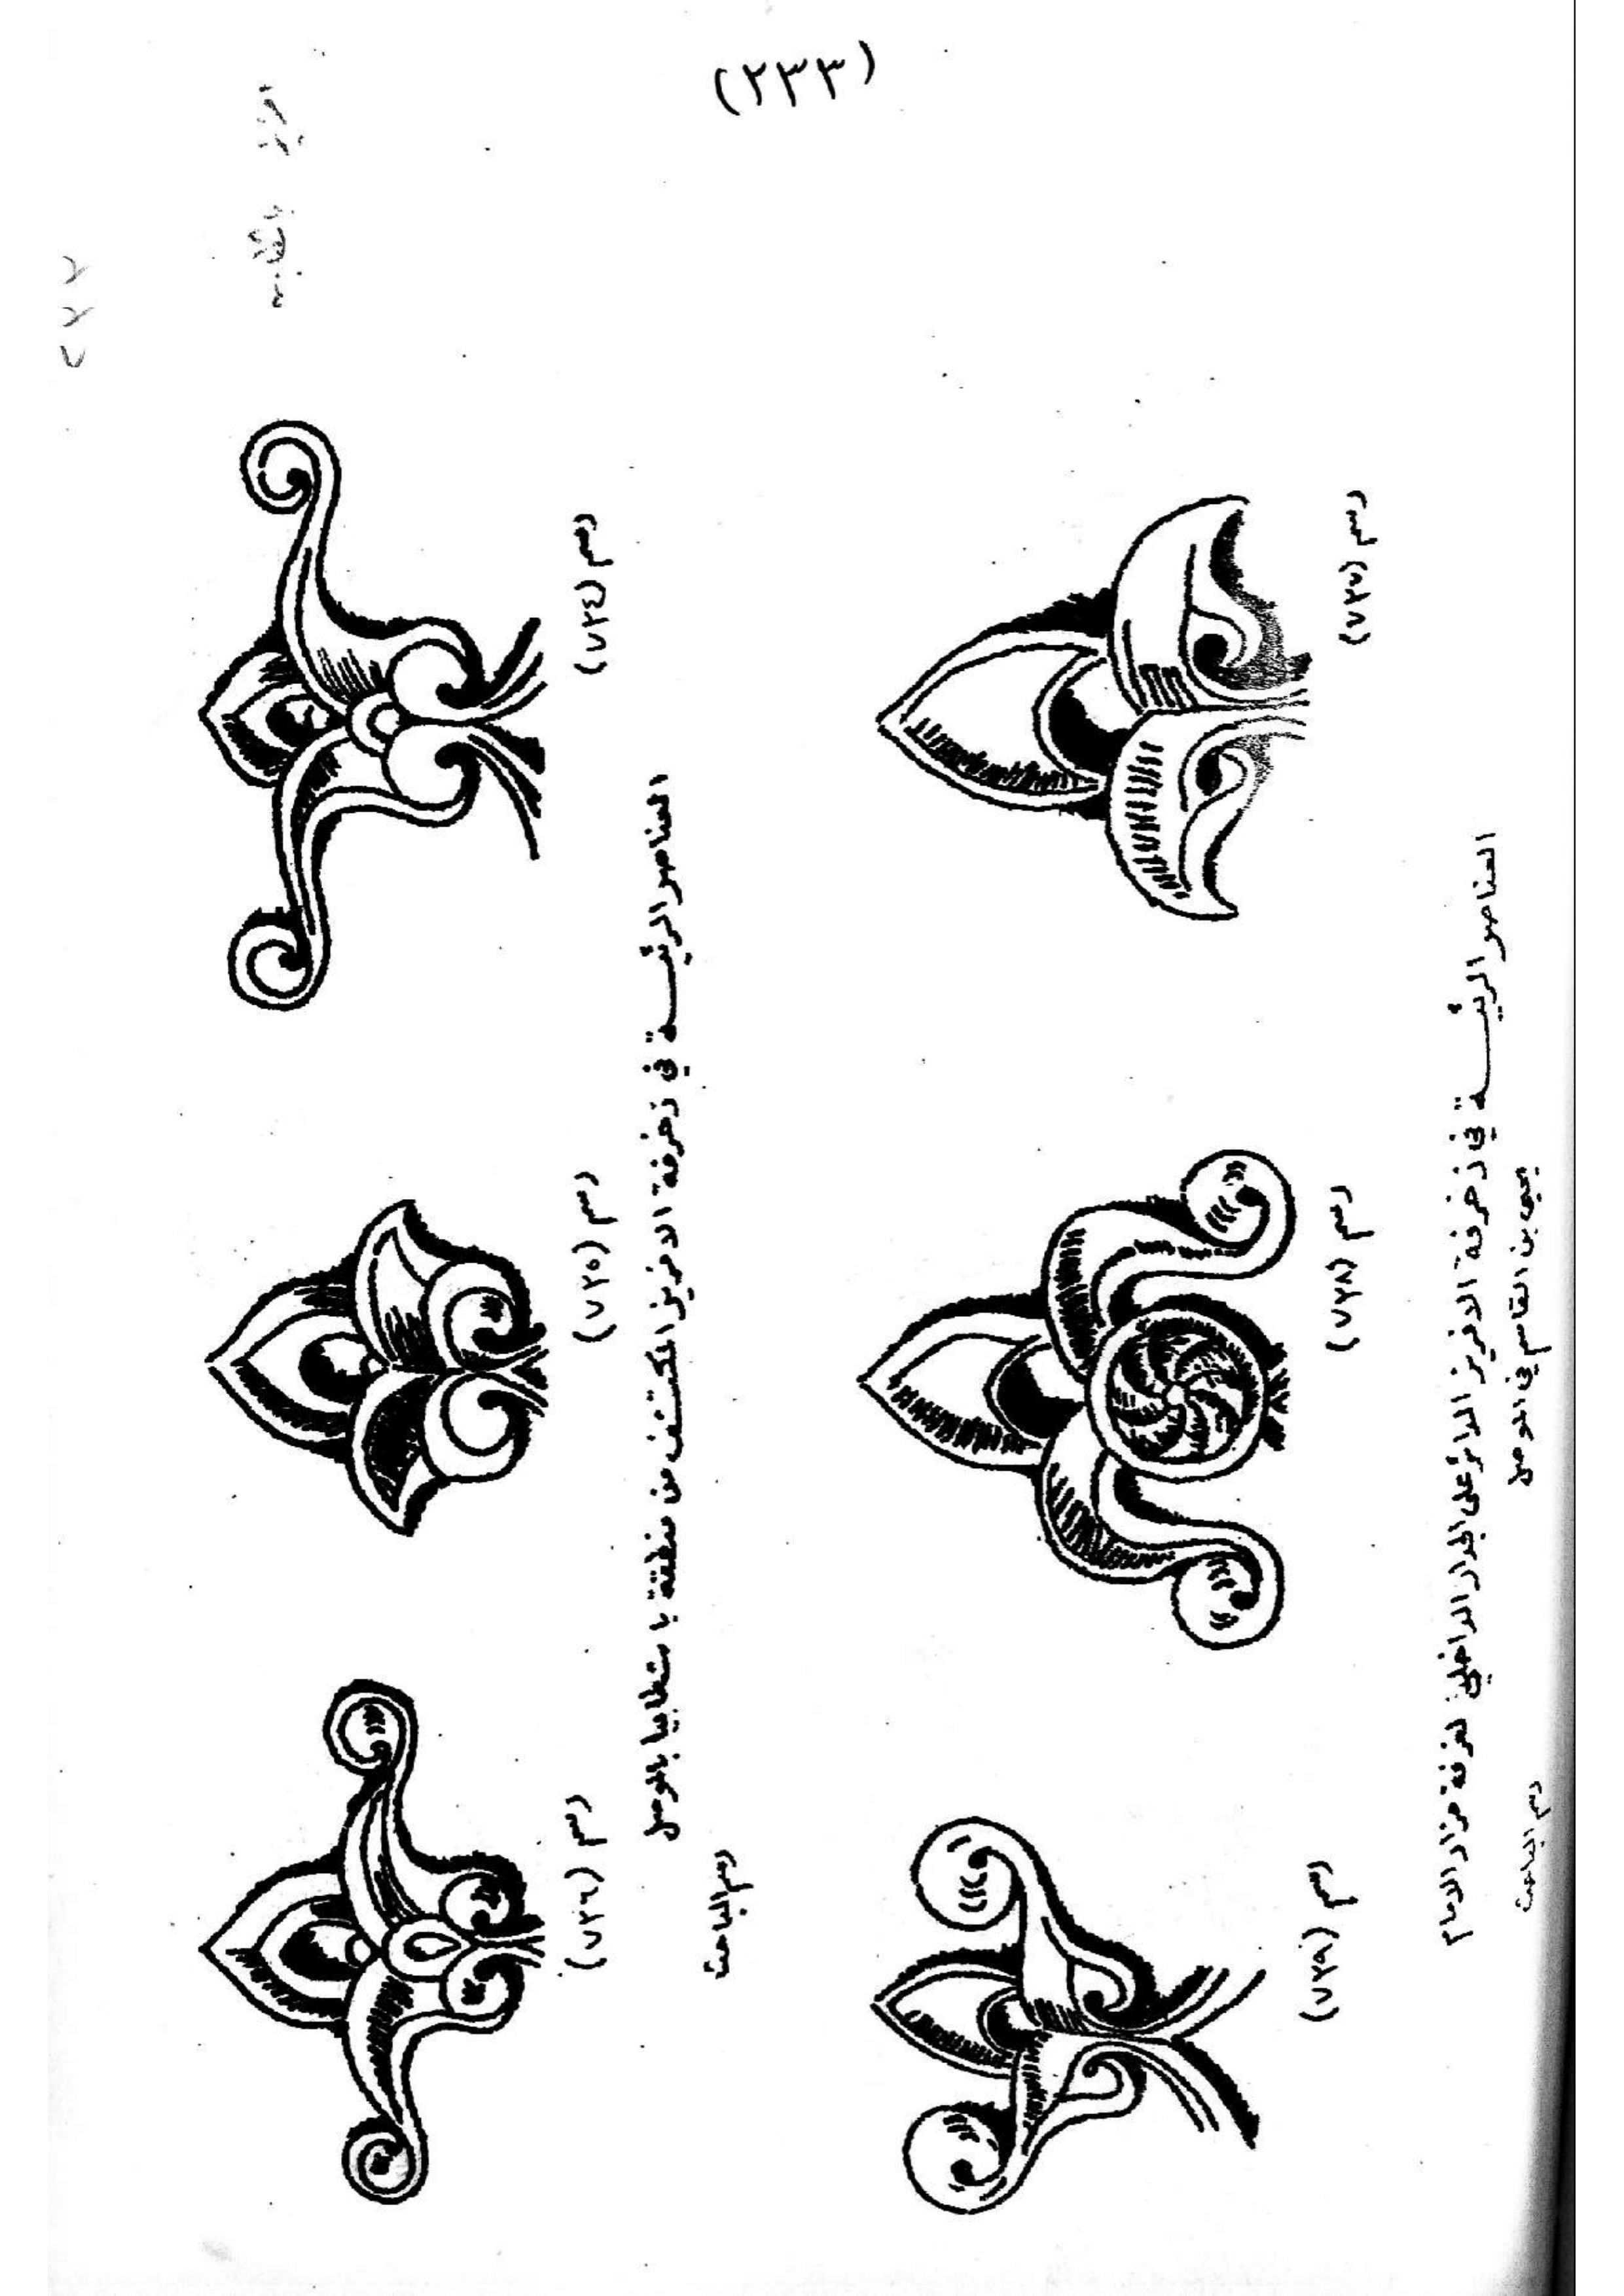 (٢٣٣)
رسم (٧٢٤)
رسم (٧٢٥)
رسم (٧٢٦)
العناصر الرئيـــسة في زخرفة الافريز المكتشف من منطقة باشطابيا بالموصل
رسم الباحث
رسم (٧٢٧)
رسم (٧٢٨)
رسم (٧٢٩)
العناصر الرئيـــسة في زخرفة الافريز الدائر على الجدار الداخلي لغرفة مزار الامام
يحيى بن القاسم في الموصل
رسم الباحث